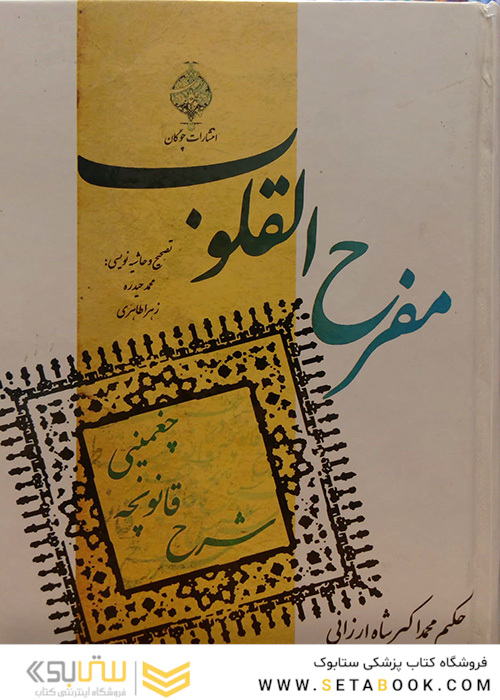 انتشارات چوگان
مفرح القلوب
تصحیح و حاشیه نویسی:
محمد حیدره
زهرا طاهری
شرح قانونچه چغمینی
حکیم محمد اکبر شاه ارزانی
فروشگاه کتاب پزشکی ستابوک
WWW.SETABOOK.COM
ستابوک
فروشگاه اینترنتی کتاب